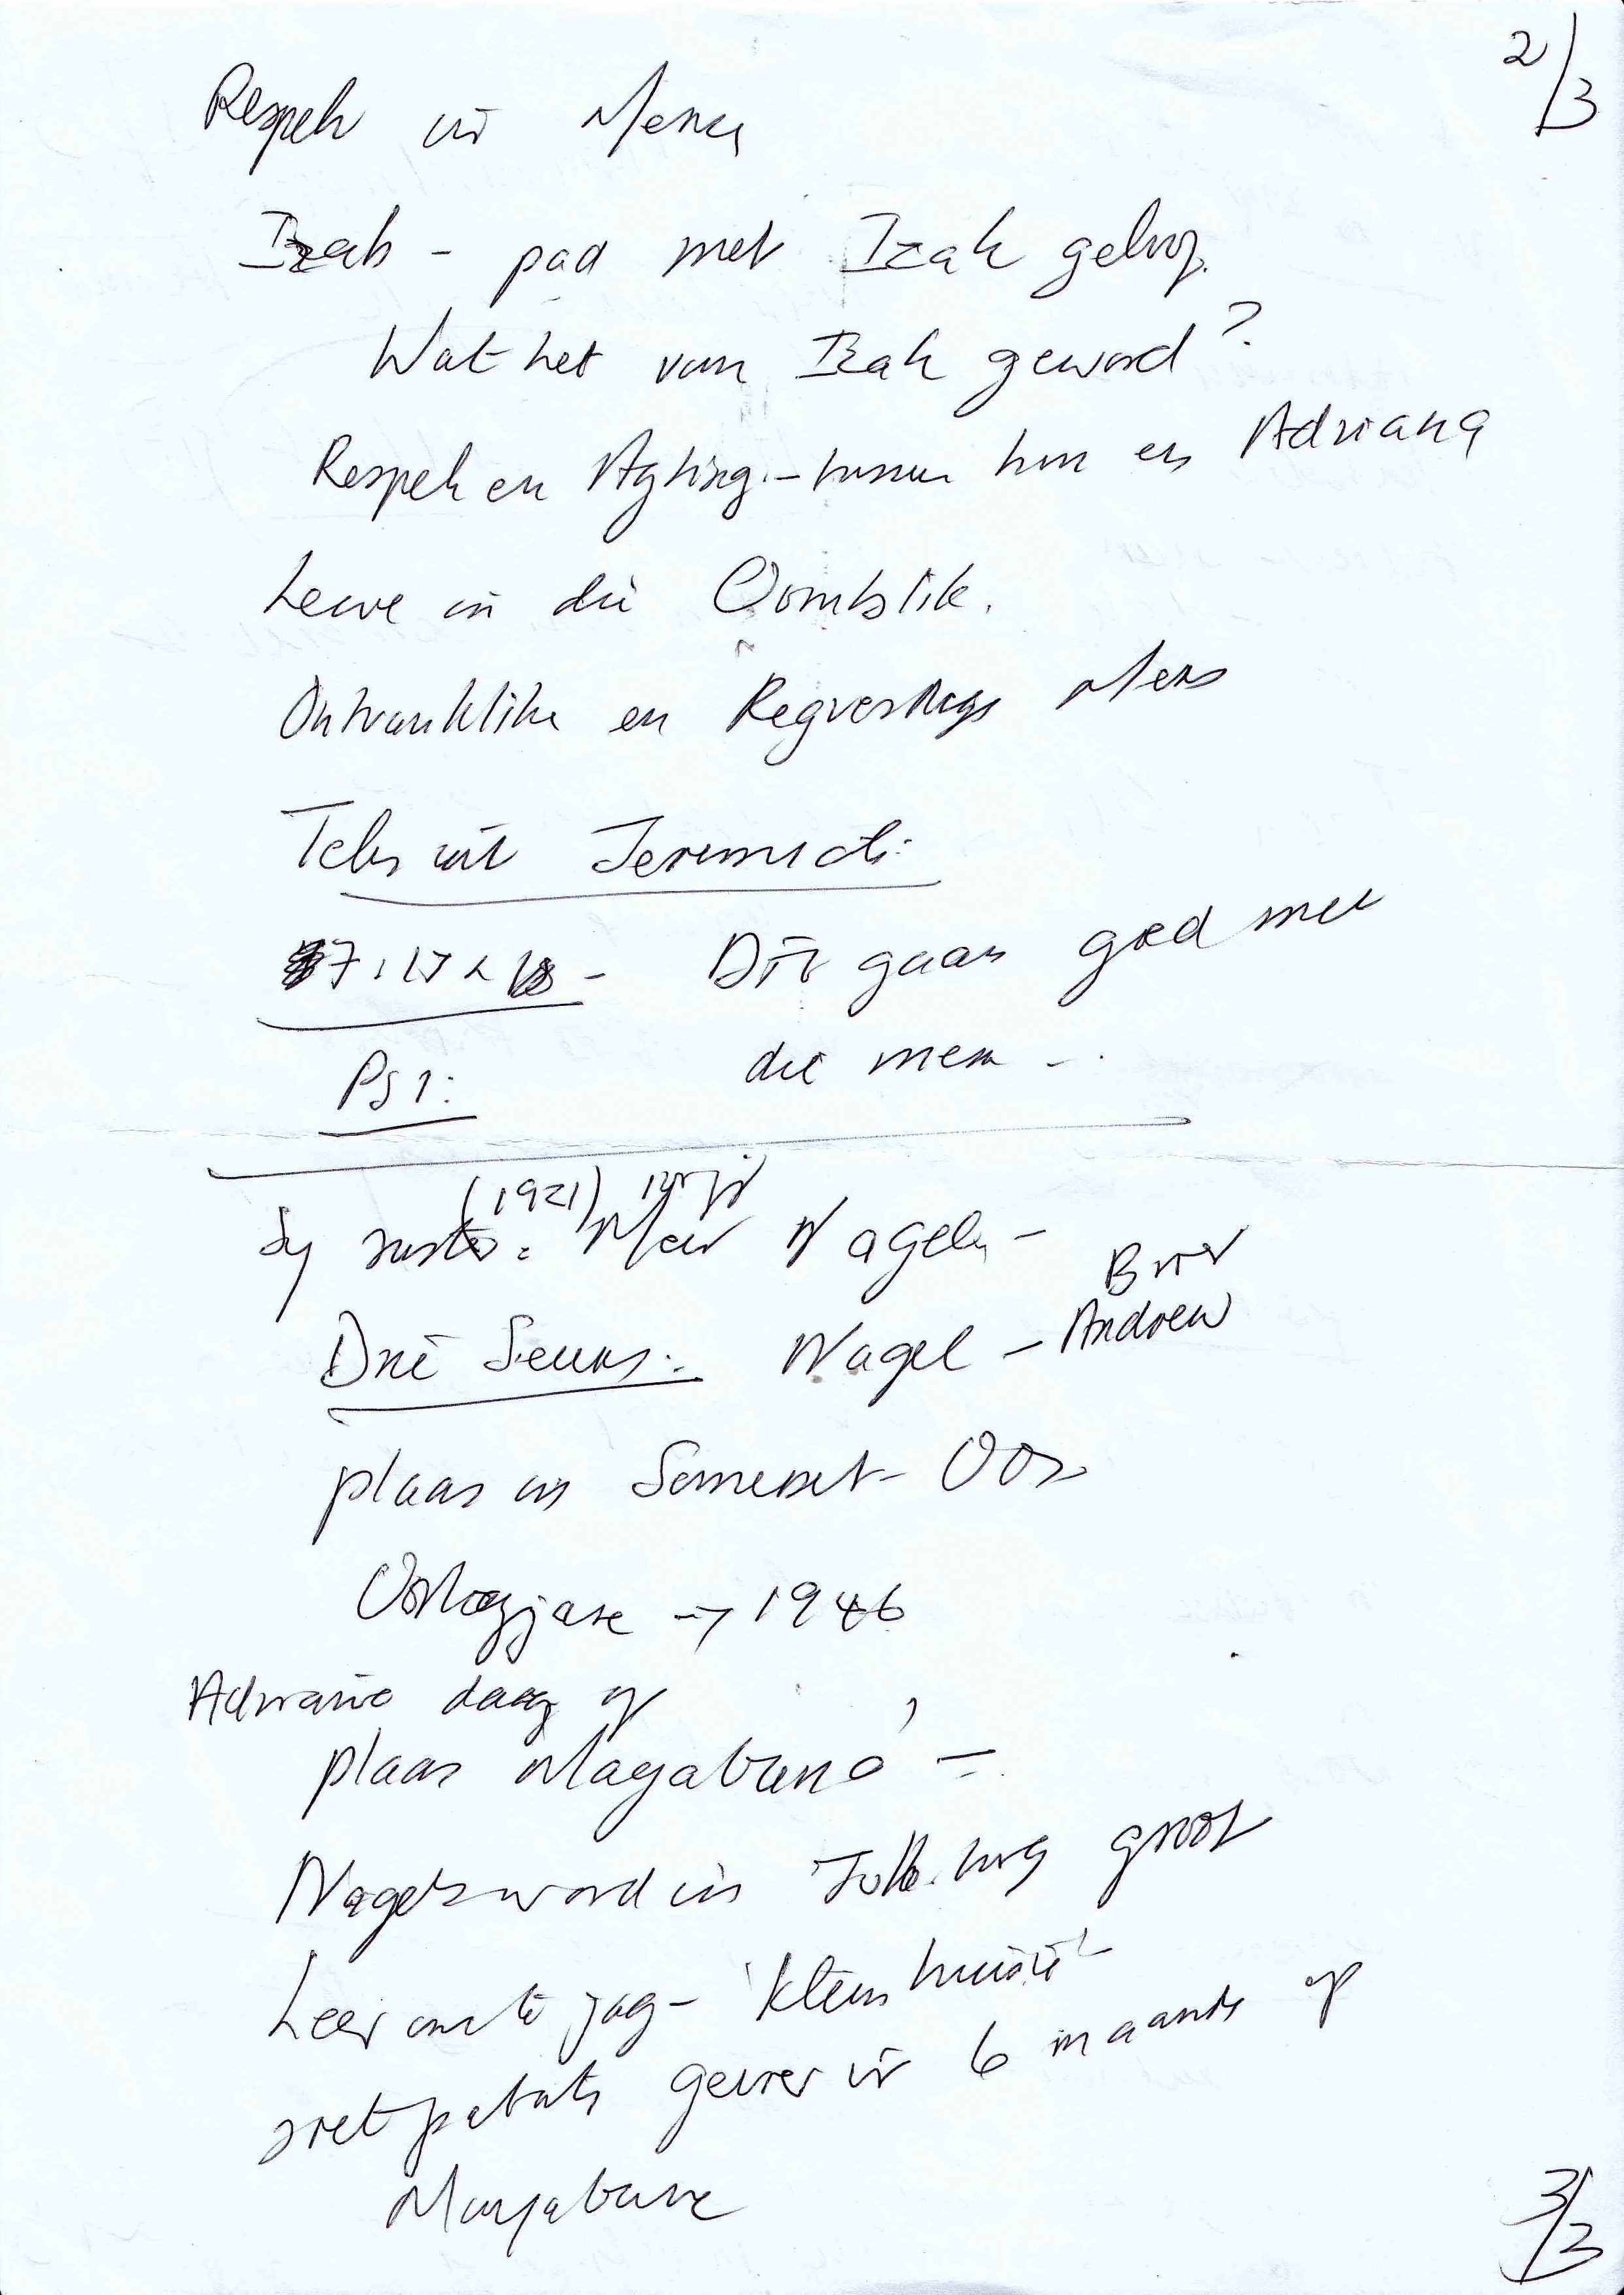 2/3
Respek vir Mense
Izak - pad met Izak geloop.
Wat het van Izak geword?
Respek en Agting - tussen hom en Adriana
Lewe in die Oomblik.
Ontvanklike en Regverdige Mens
Teks uit Jeremia:
7: 17 & 18 - Dit gaan goed met
die mens -
Ps 1:
(1921)
Sy suster: Nagel -
Broer
Drie Seuns: Nagel - Andrew
plaas in Somerset-Oos
Oorlogjare → 1946
daag op
plaas Magabane -
Nagels word in Johb. hrg groot
Leer ons te jag - 'Klein huisie'
geleef vir 6 maande op
3/3